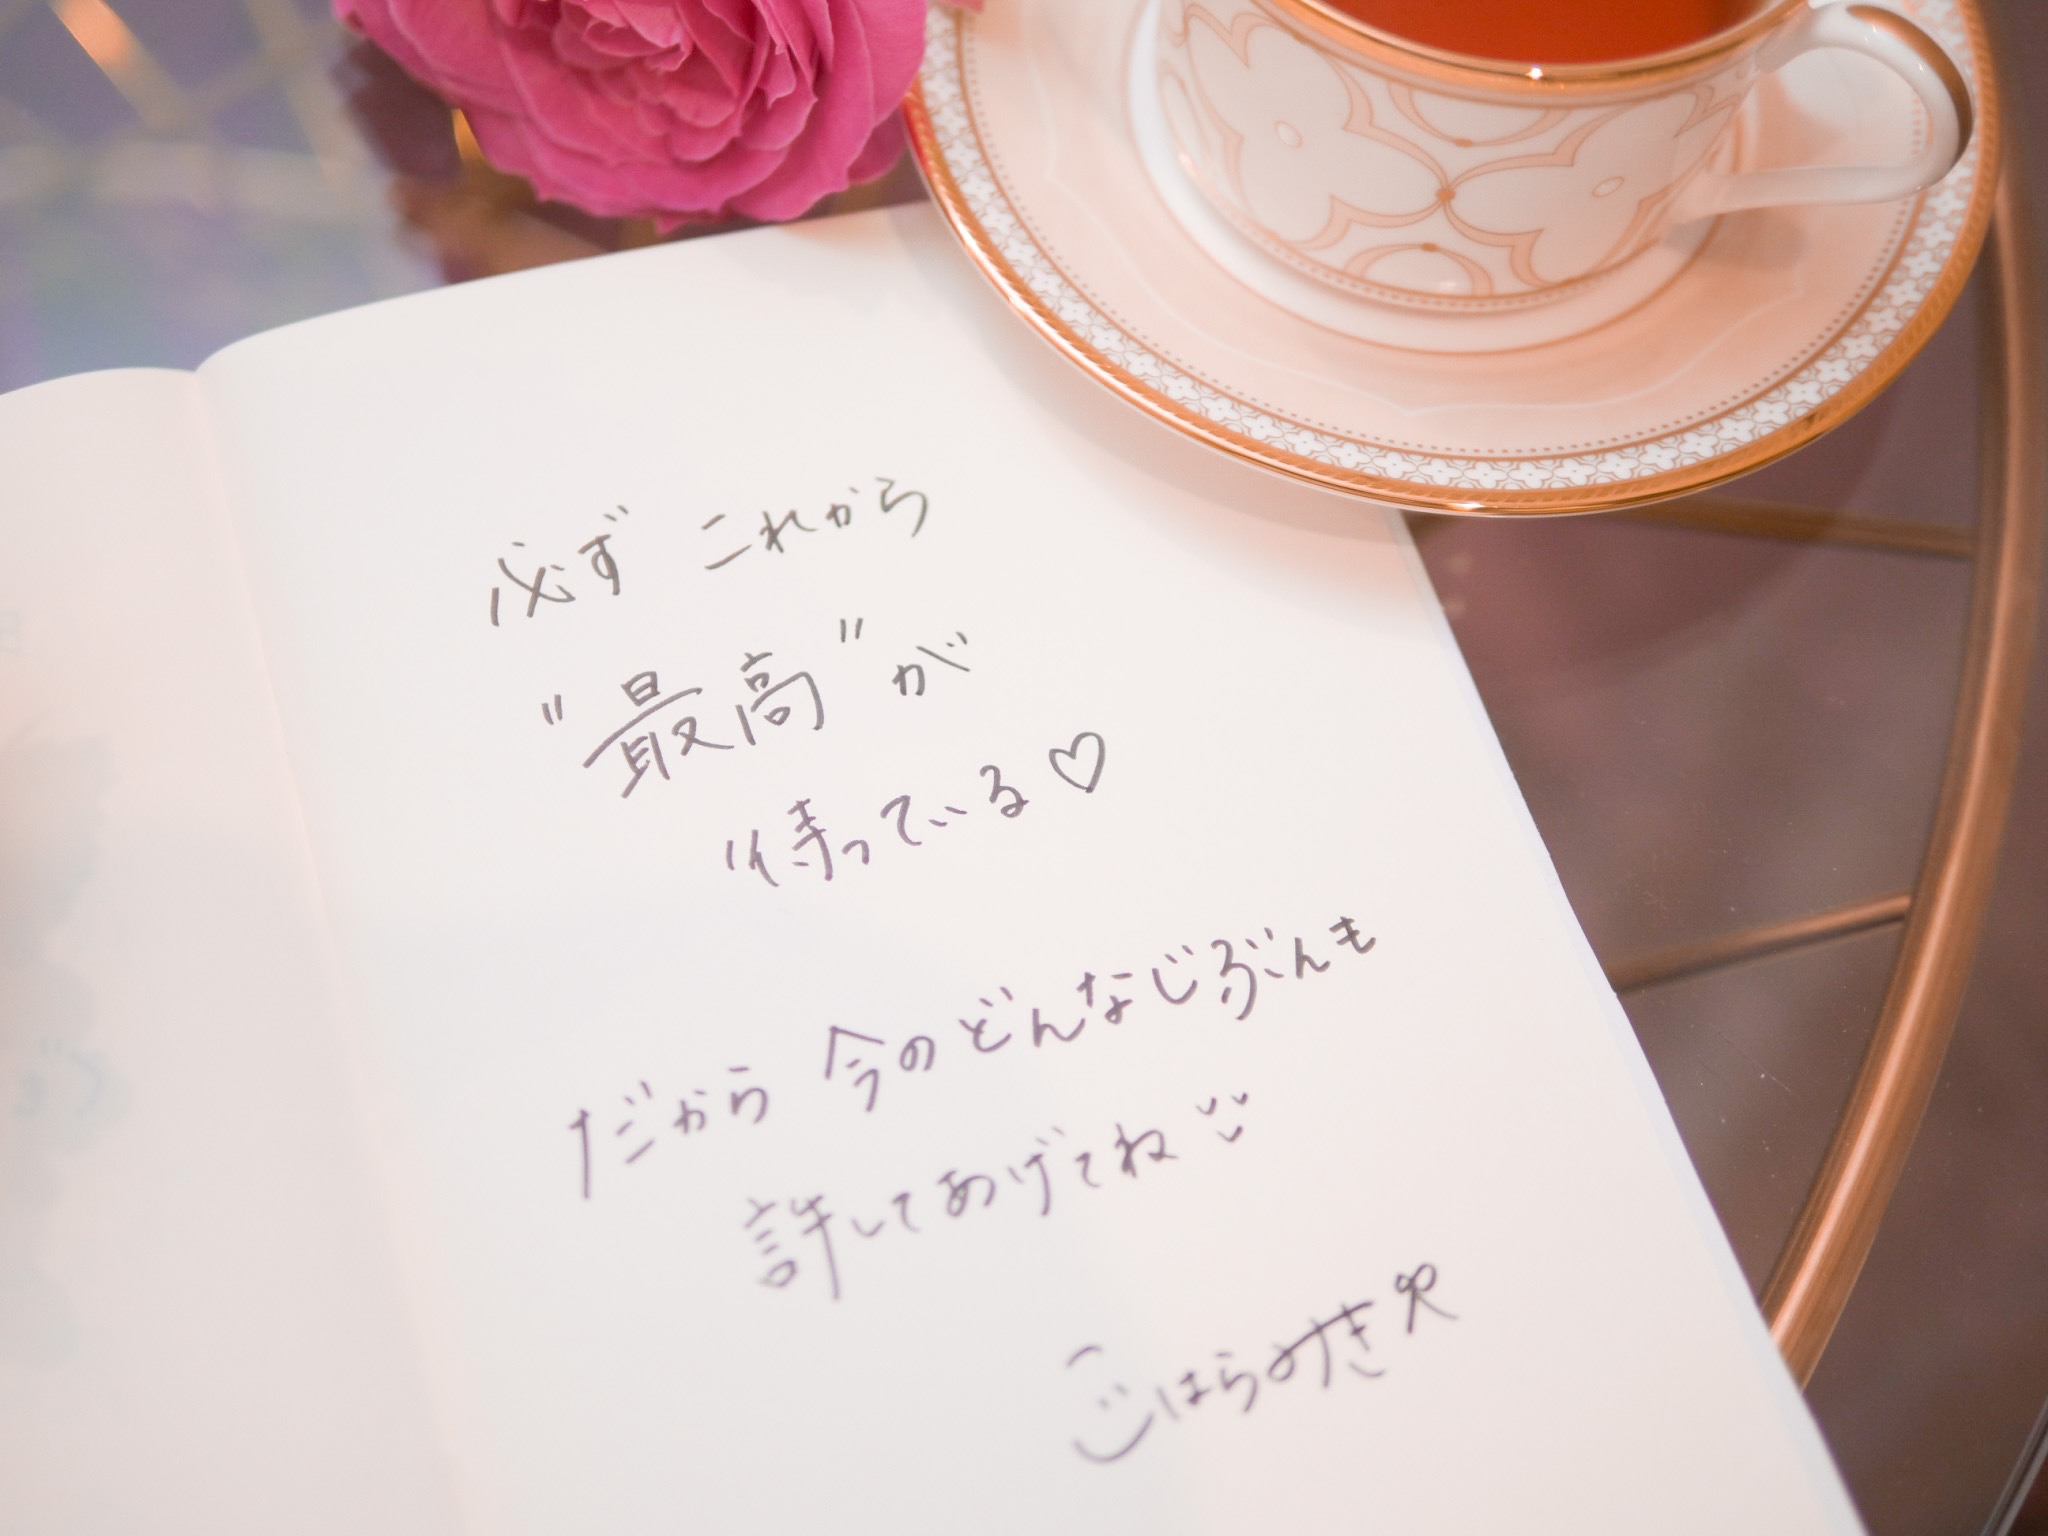 必ず これから
"最高"が
待っている♡
だから 今のどんなじぶんも
許してあげてね
ごはらみずき